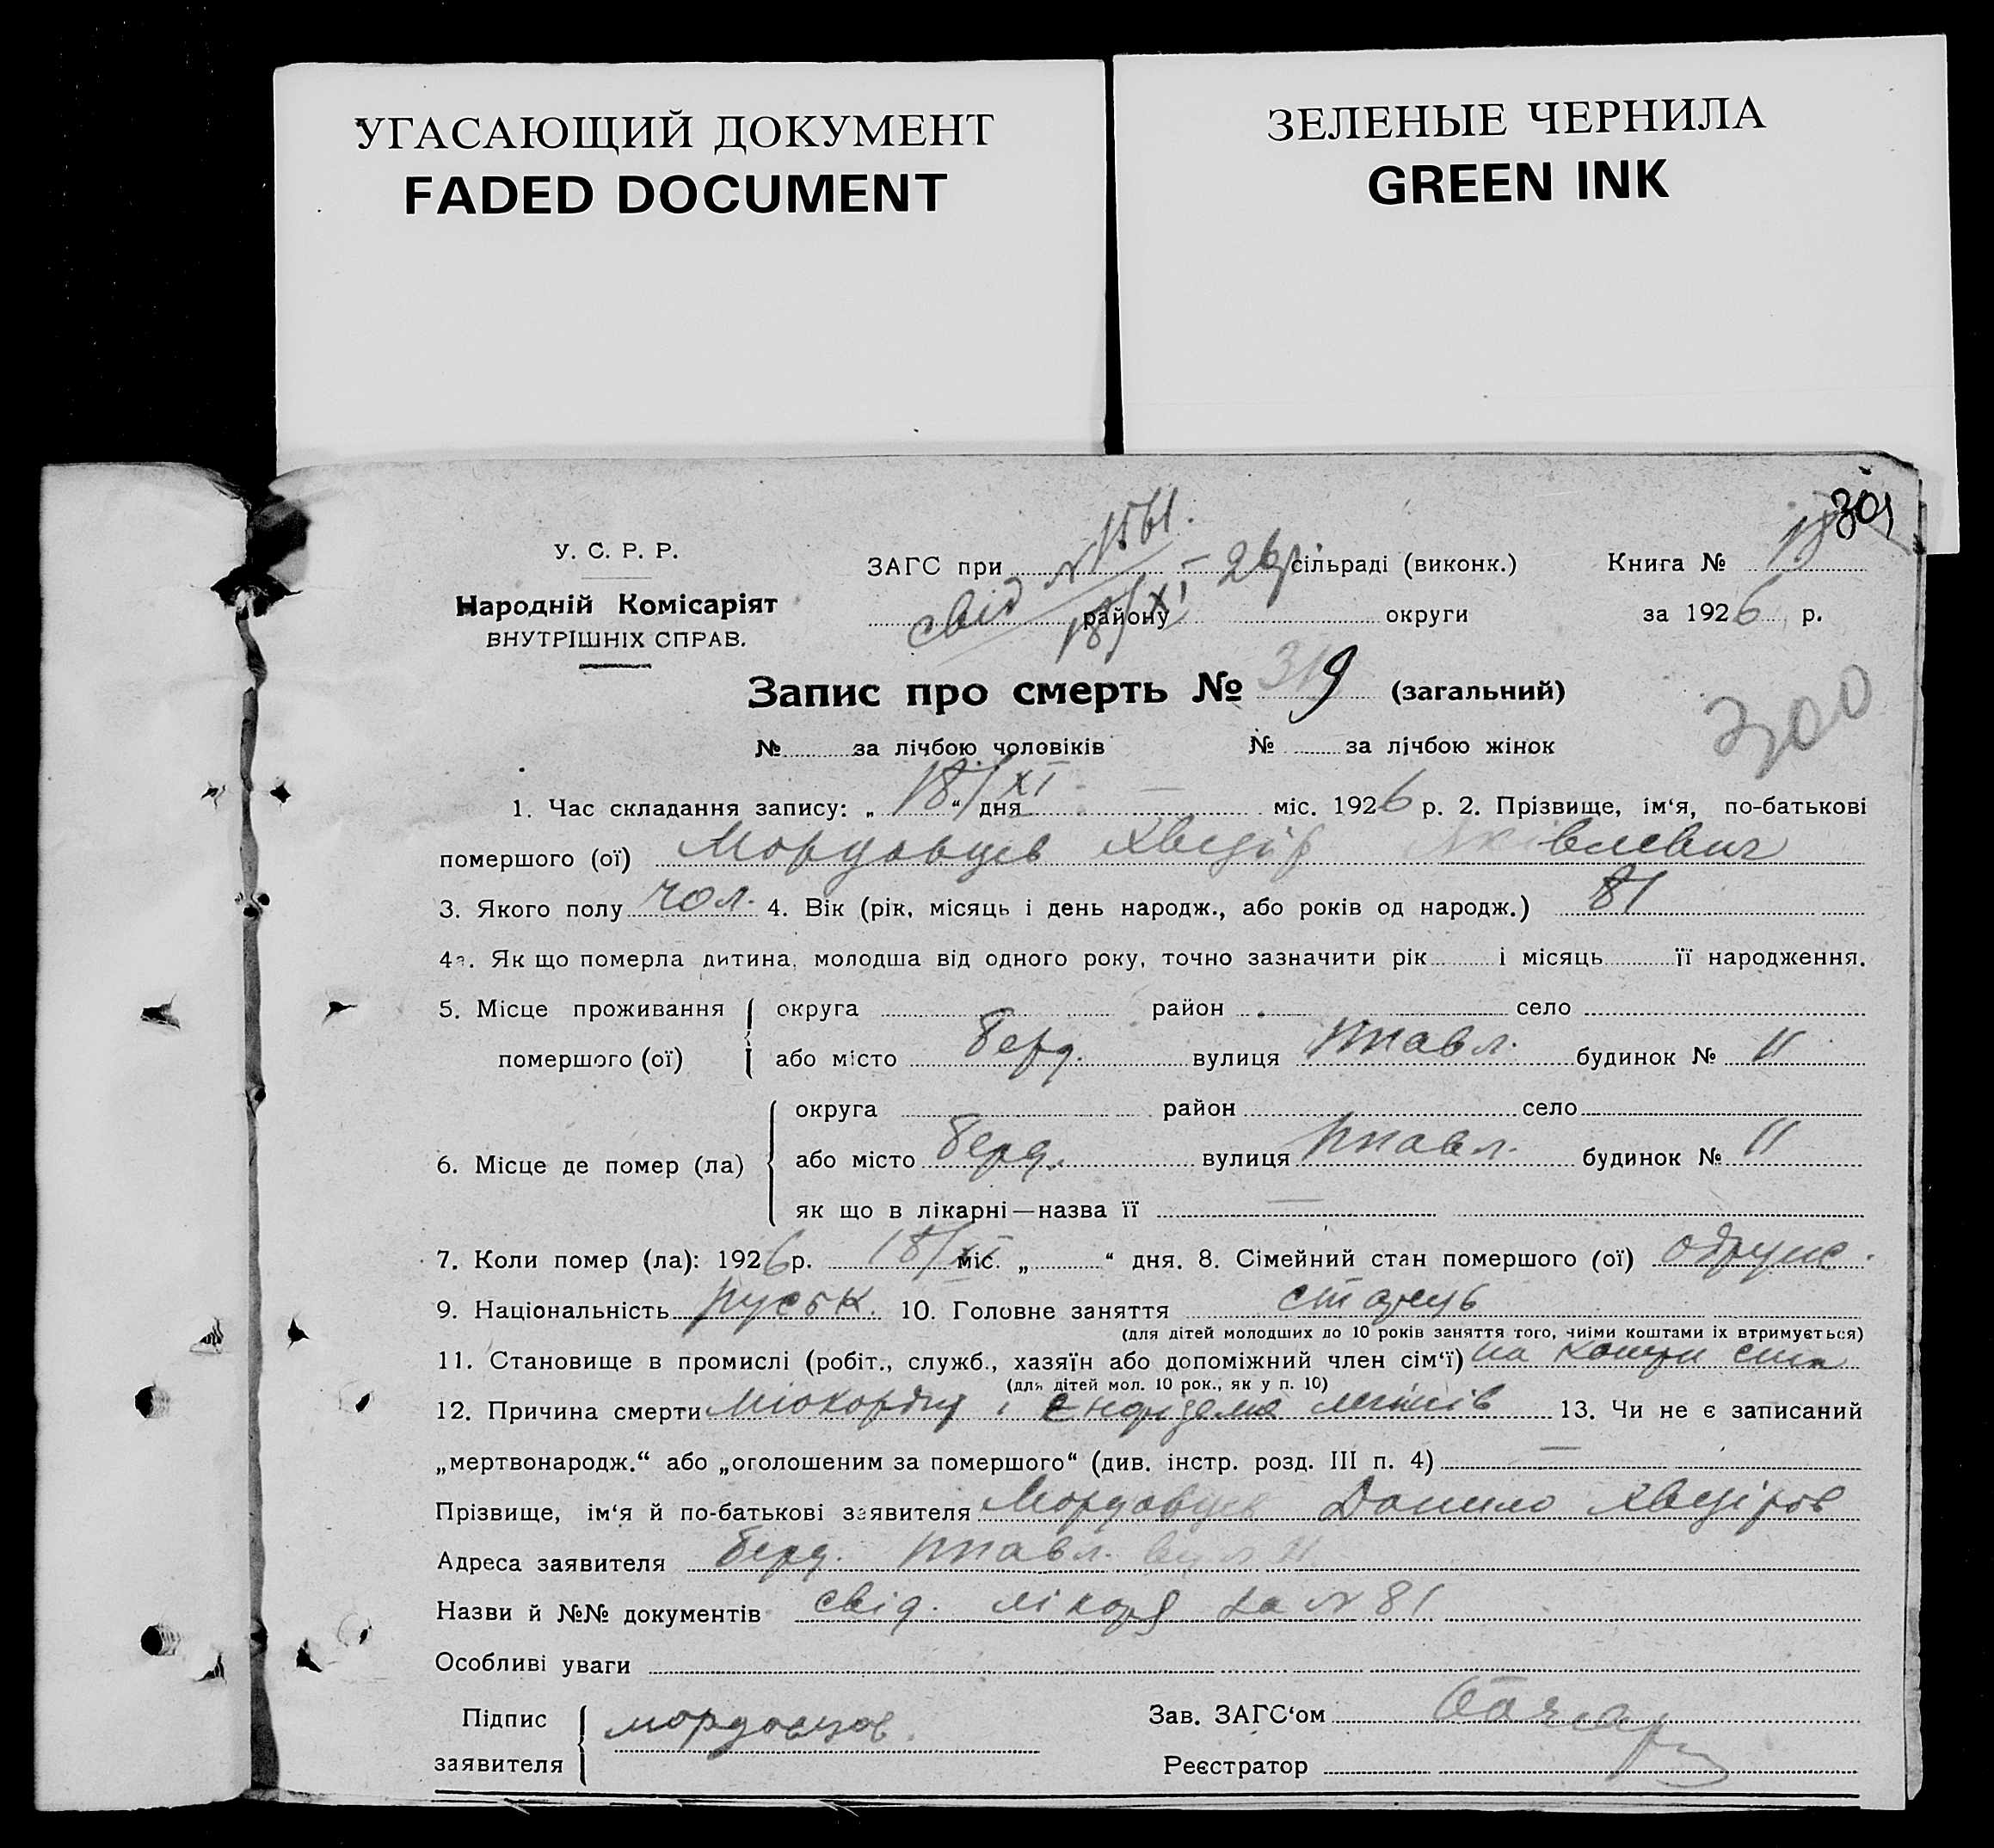 УГАСАЮЩИЙ ДОКУМЕНТ
FADED DOCUMENT
ЗЕЛЕНЫЕ ЧЕРНИЛА
GREEN INK
301
У. С. Р. Р.
Народній Комісаріят
ВНУТРІШНІХ СПРАВ.
свід № 1561.
18/XI – 26 р.
ЗАГС при сільраді (виконк.)
району округи
Книга №
за 1926 р.
Запис про смерть № 319 (загальний)
300
№ за лічбою чоловіків № за лічбою жінок
1. Час складання запису: „ 18/XI “ дня — міс. 1926 р. 2. Прізвище, ім‘я, по-батькові
помершого (ої) Мордовцев Хведір Яківлевич
3. Якого полу чол. 4. Вік (рік, місяць і день народж., або років од народж.) 81
4а. Як що померла дитина, молодша від одного року, точно зазначити рік і місяць її народження.
5. Місце проживання помершого (ої) округа район село
або місто Берд. вулиця будинок № 11
6. Місце де помер (ла) округа район село
або місто Берд. вулиця будинок № 11
як що в лікарні—назва її —
7. Коли помер (ла): 1926 р. 18/XI міс. „ “ дня. 8. Сімейний стан помершого (ої) одруж.
9. Національність руськ. 10. Головне заняття старець
(для дітей молодших до 10 років заняття того, чиїми коштами їх втримується)
11. Становище в промислі (робіт., служб., хазяїн або допоміжний член сім‘ї) на кошти сина
(для дітей мол. 10 рок., як у п. 10)
12. Причина смерти і 13. Чи не є записаний
„мертвонародж.“ або „оголошеним за помершого“ (див. інстр. розд. III п. 4) —
Прізвище, ім‘я й по-батькові заявителя Мордовцев Данило Хведіров
Адреса заявителя Берд. вул 11
Назви й №№ документів свід. лікаря за № 81
Особливі уваги
Підпис заявителя мордовцов.
Зав. ЗАГС‘ом
Реєстратор